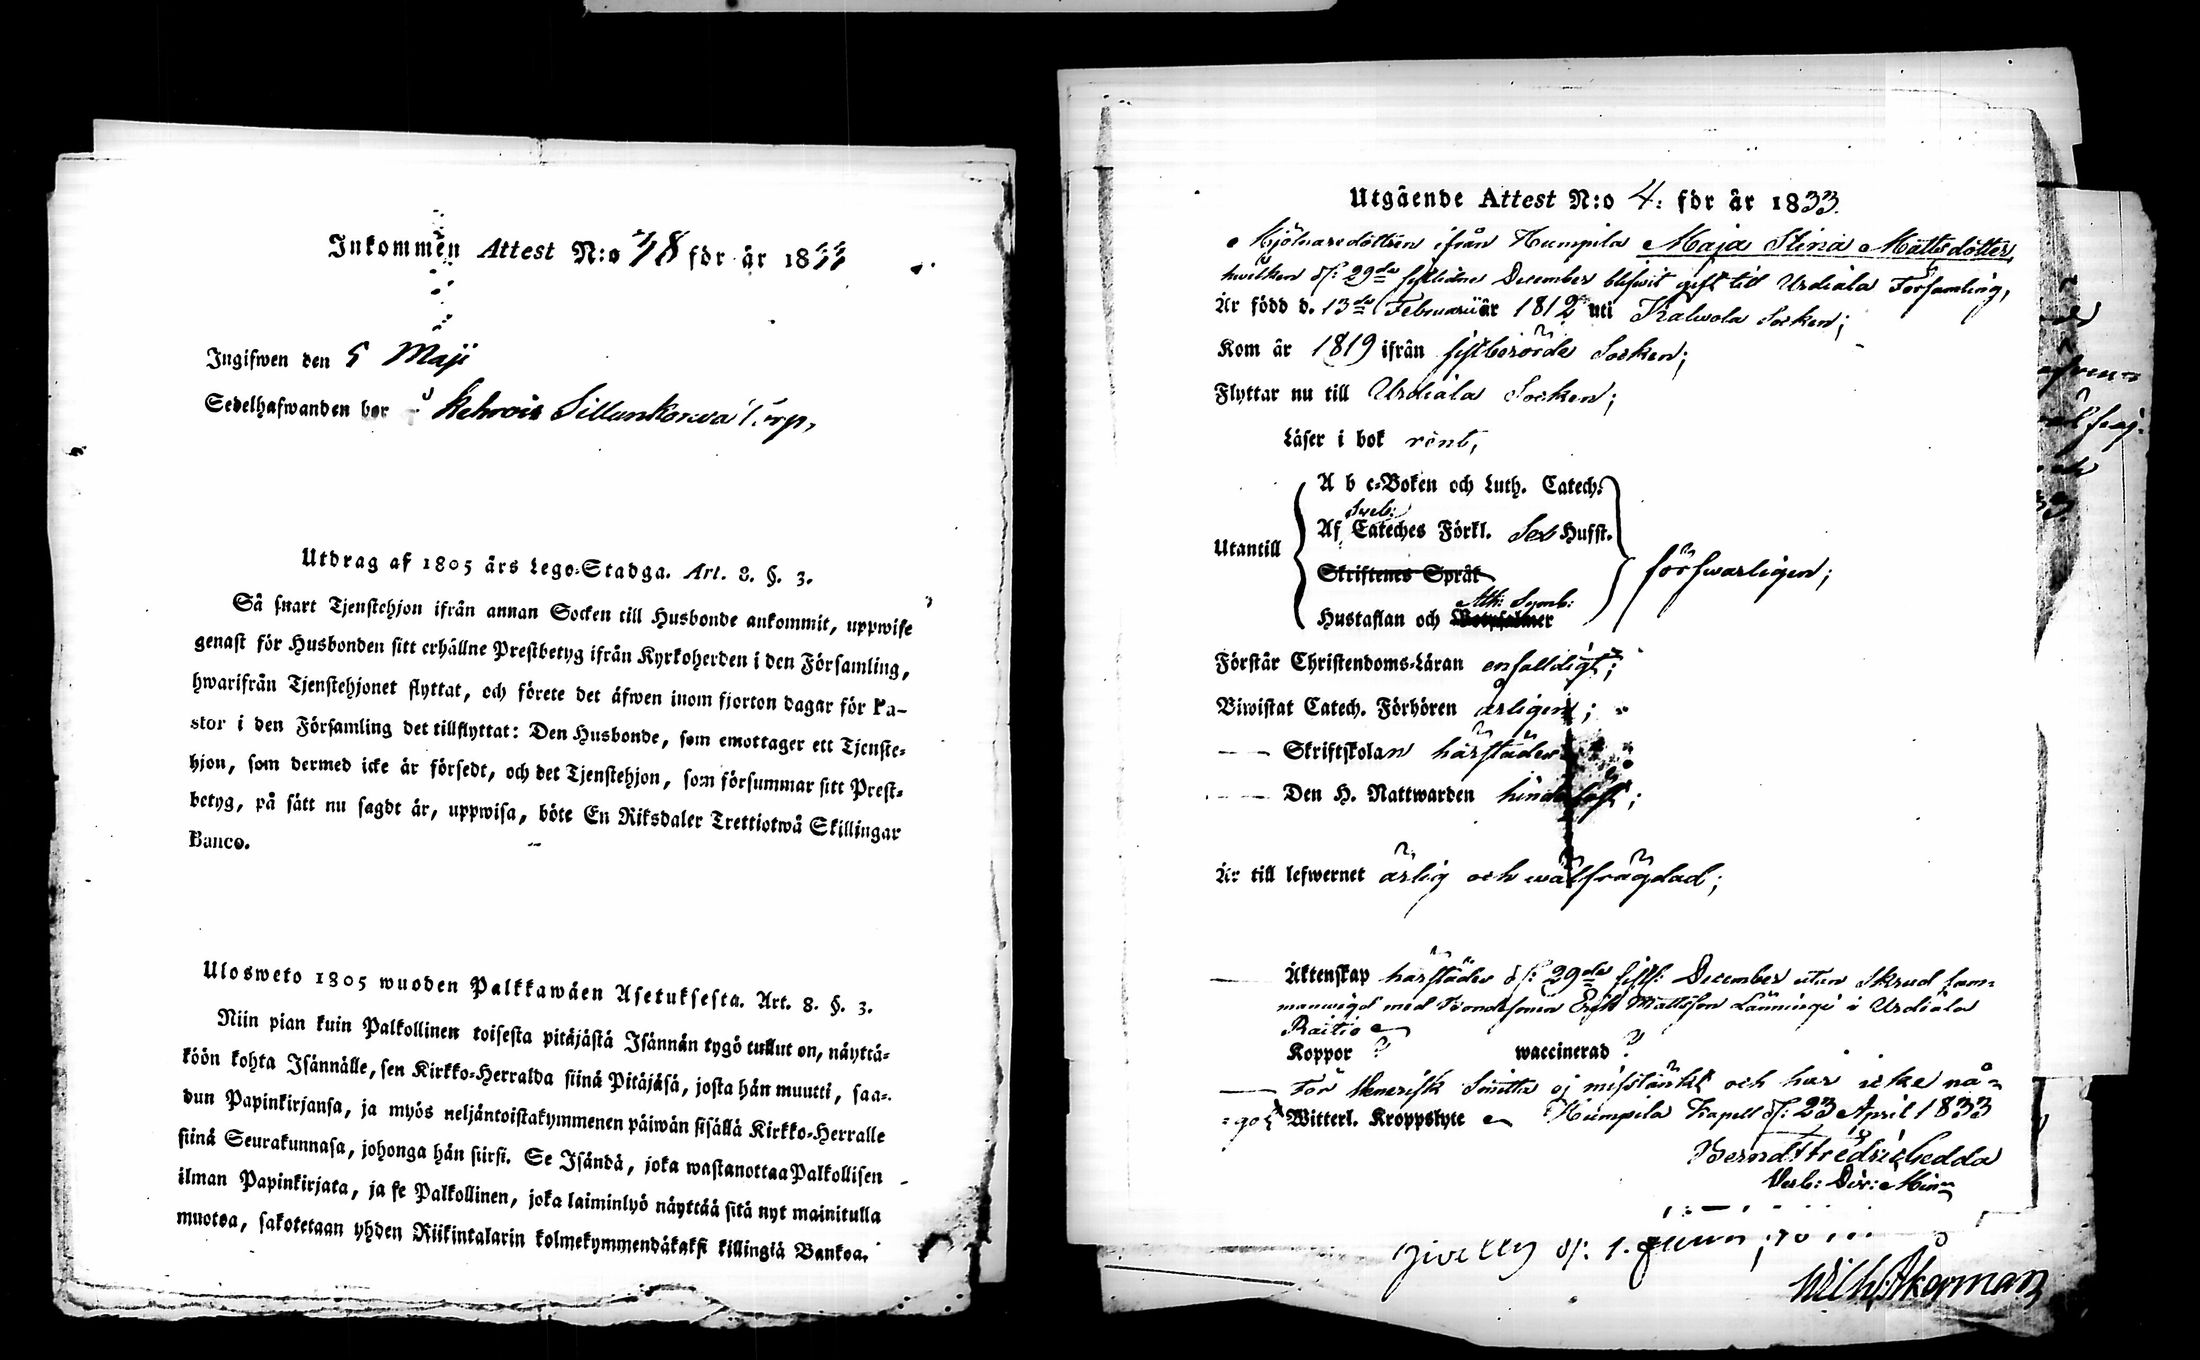 Inkommen Attest N:o 78 för år 1833
Ingifwen den 5 Maji
Sedelhafwanden bor i Torp,
Utdrag af 1805 års Lego-Stadga. Art. 8. §. 3.
Så snart Tjenstehjon ifrån annan Socken till Husbonde ankommit, uppwise
genast för Husbonden sitt erhållne Prestbetyg ifrån Kyrkoherden i den Församling,
hwarifrån Tjenstehjonet flyttat, och förete det äfwen inom fjorton dagar för Pa-
stor i den Församling det tillflyttat: Den Husbonde, som emottager ett Tjenste-
hjon, som dermed icke är försedt, och det Tjenstehjon, som försummar sitt Prest-
betyg, på sätt nu sagdt är, uppwisa, böte En Riksdaler Trettiotwå Skillingar
Banco.
Ulosweto 1805 wuoden Palkkawäen Asetuksesta. Art. 8. §. 3.
Niin pian kuin Palkollinen toisesta pitäjästä Isännän tygö tullut on, näyttä-
köön kohta Isännälle, sen Kirkko-Herralda siinä Pitäjäsä, josta hän muutti, saa-
dun Papinkirjansa, ja myös neljäntoistakymmenen päiwän sisällä Kirkko-Herralle
siinä Seurakunnasa, johonga hän siirsi. Se Isändä, joka wastanottaa Palkollisen
ilman Papinkirjata, ja se Palkollinen, joka laiminlyö näyttää sitä nyt mainitulla
muotoa, sakotetaan yhden Riikintalarin kolmekymmendäkaksi killingiä Bankoa.
Utgående Attest N:o 4. för år 1833.
Mjölnaredottren ifrån Humpila Maja Stina Mattsdotter,
hwilken d: 29de sistledne December blifwit gift till Urdiala Församling,
Är född d. 13de Februarii år 1812 uti Kalwola Socken;
Kom år 1819 ifrån sistberörde Socken;
Flyttar nu till Urdiala Socken;
Läser i bok rent,
A b c-Boken och Luth. Catech.
Sveb:
Af Cateches Förkl. Hufst.
Utantill
förswarligen;
Skriftenes Språk
Ath: Symb:
Hustaflan och
Förstår Christendoms-Läran enfaldigt;
Biwistat Catech. Förhören årligen;
Skriftskolan härstädes
Den H. Nattwarden
Är till lefwernet ärlig och wälfrägdad;
Äktenskap härstädes d: 29de sistl: December utan Skrud sam-
manwigd med Bondesonen Erik Mattsson Länningi i Urdiala
Raitio
Koppor ? waccinerad ?
För Venerisk Smitta ej misstänkt och har icke nå-
got Witterl. Kroppslyte Humpila Kapell d: 23 April 1833
Berndt Fredric Gedda
Verb: Div: Min:
Wilh: Åkerman